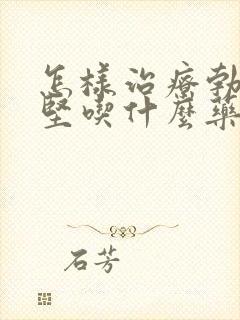 怎樣治療勃
堅喫什麼藥
石芳